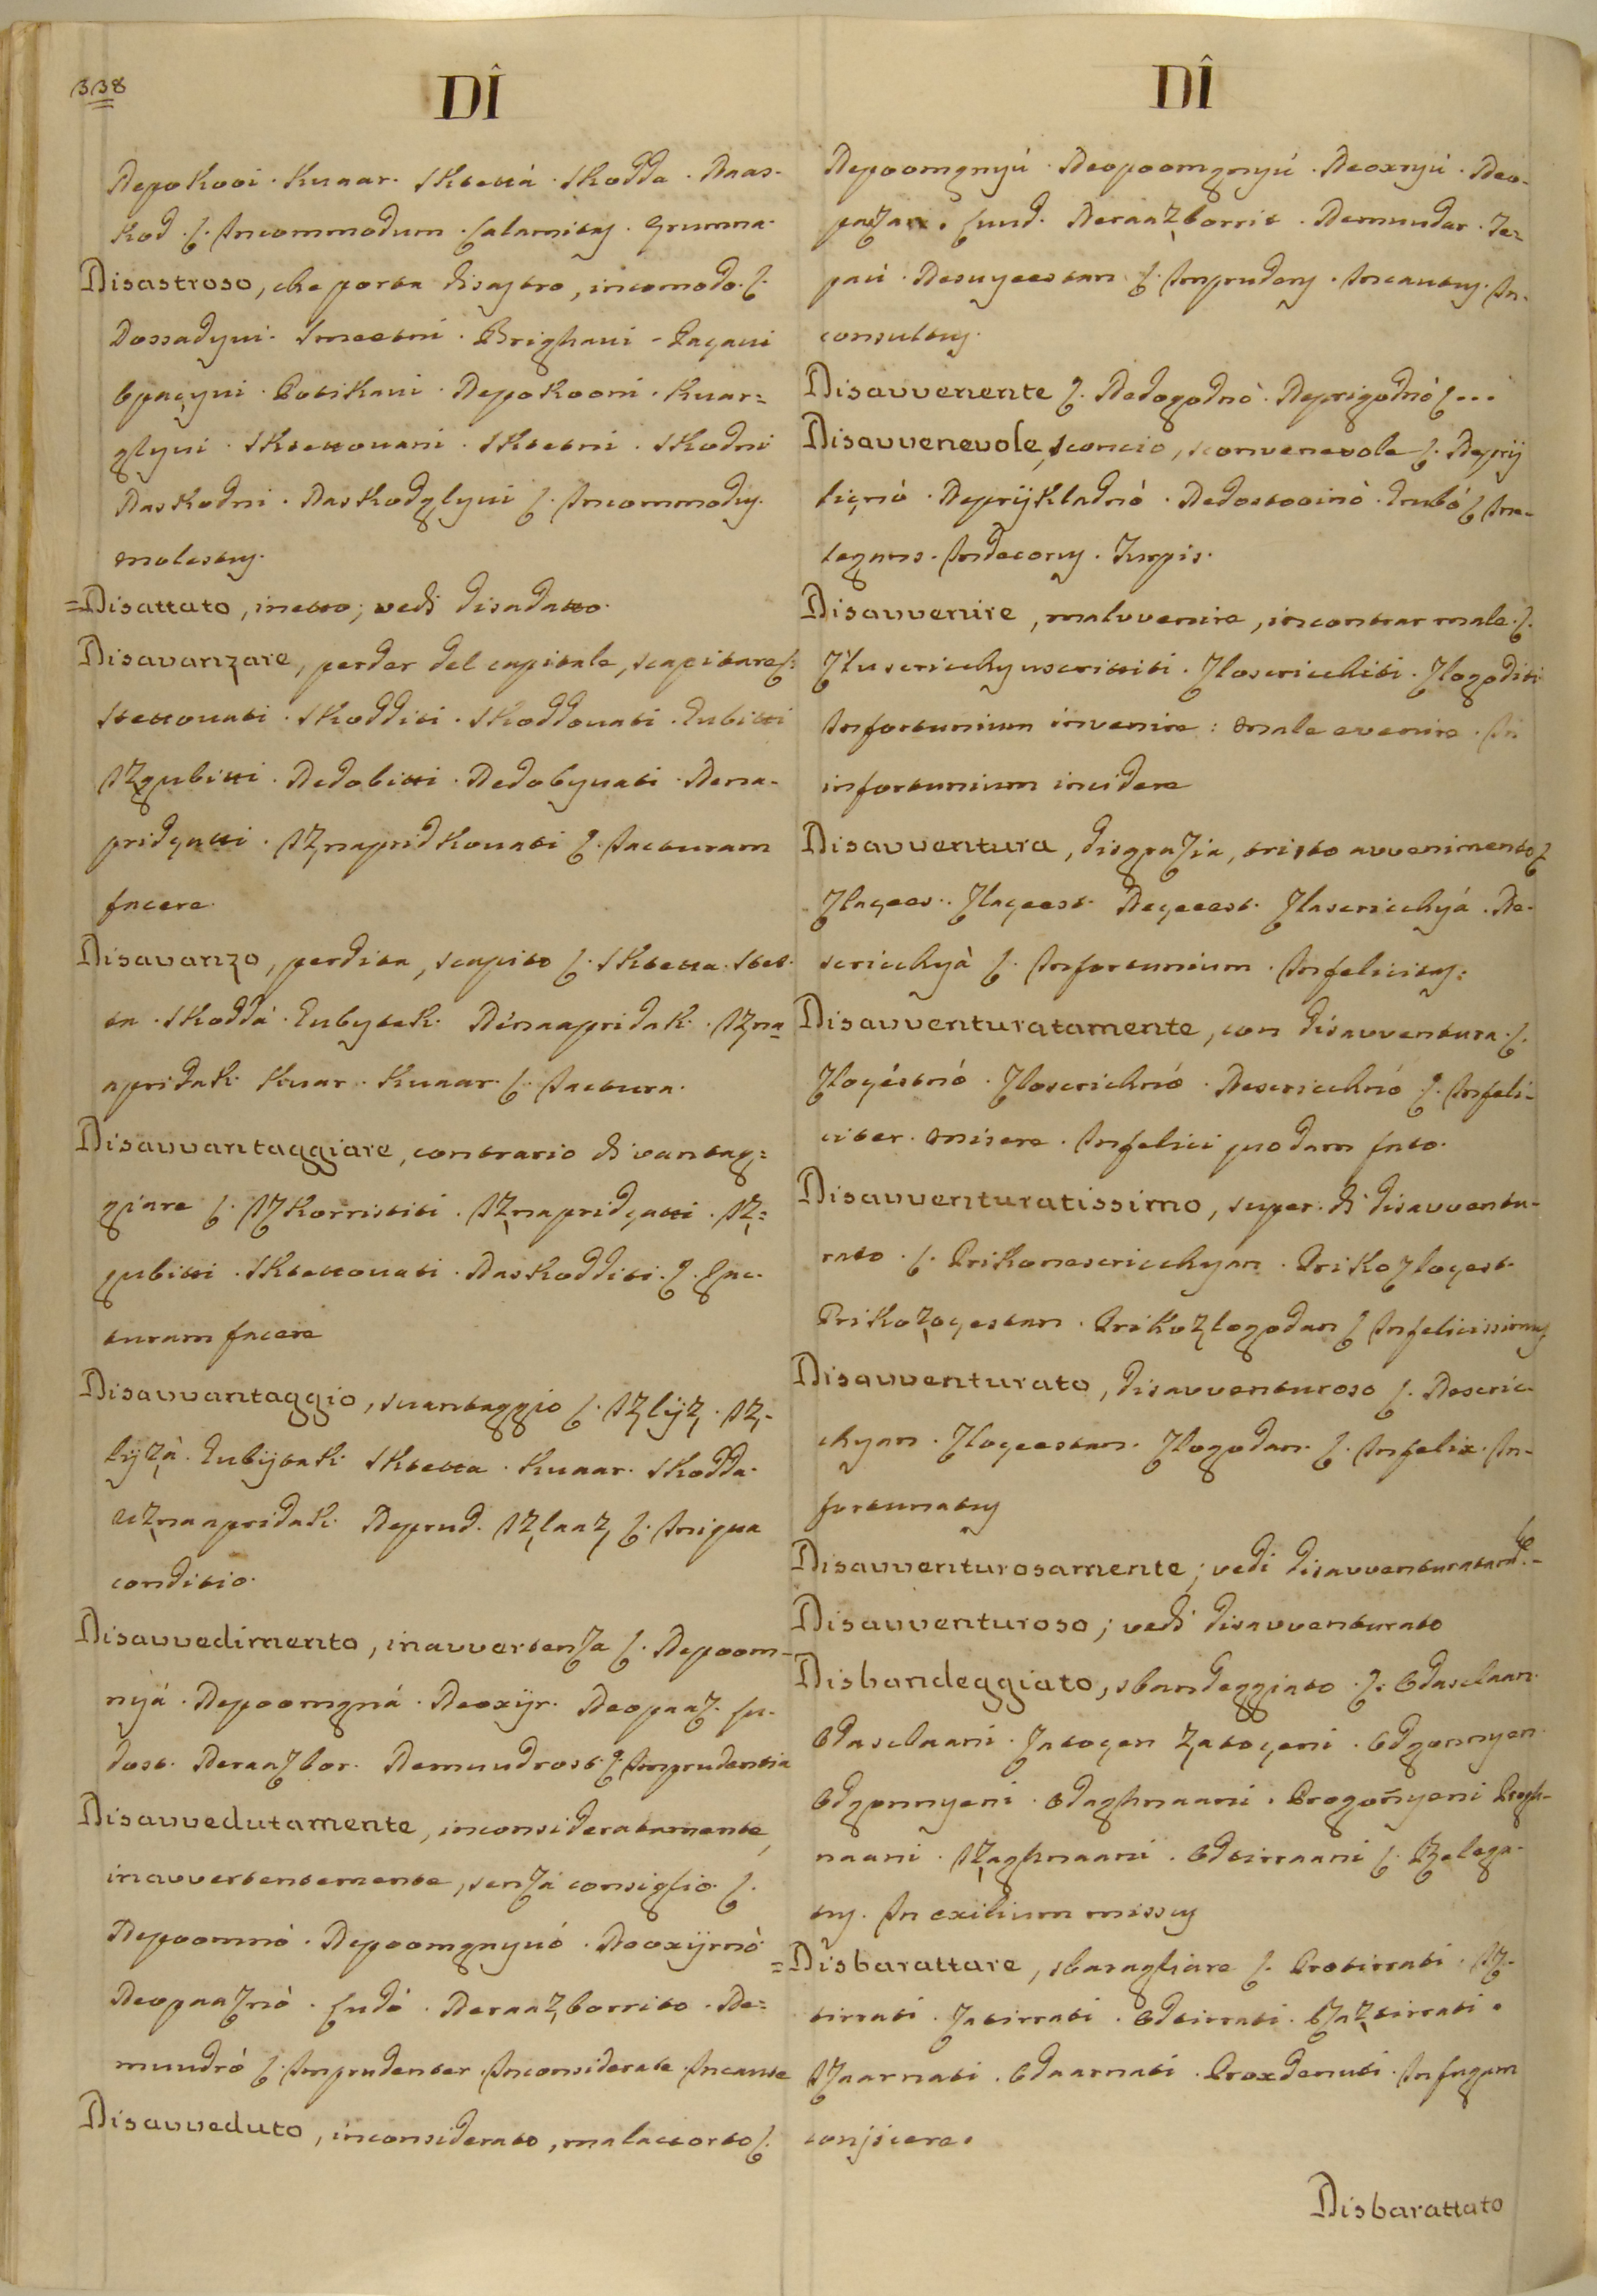 338
DÎ
Nepokooi. Kuaar. Sktettà. Skodda. Naas-
kod. §. Incommodum. Calamitas. Erumna.
Disastroso, che porta disastro, incomodo. §.
Dossadgivi. Smeetni. Brighavi. Pacavi
Opacgivi. Potikavi. Nepokooni. Kuar=
glyivi. Sktettovani. Sktetni. Skodni
Naskodni. Naskodglyivi §. Incommodus.
molestus.
=Disattato, inetto; vedi disadatto.
Disavanzare, perder del capitale, scapitare §.
Stettovati. Skodditi. Skoddovati. Gubitti
Izgubitti. Nedobitti. Nedobyvati. Nena-
pridgatti. Iznapridkovati §. Jacturam
facere.
Disavanzo, perdita, scapito §. Sktetta. Stet-
ta. Skoddà. Gubytak. Nénaapridak. Izna=
apridak. Kuar. Kuaar. §. Jactura.
Disavvantaggiare, contrario di vantag=
giare §. Izkorristiti. Iznapridgatti. Iz=
gubitti. Sktettovati. Naskodditi. §. Jac-
turam facere
Disavvantaggio, svantaggio §. Izlijz. Iz-
lijzà. Gubijtak. Sktetta. Kuaar. Skodda.
Uznaapridak. Neprud. Izlaaz §. Iniqua
conditio.
Disavvedimento, inavvertenza §. Nepoom-
nyá. Nepoomgná. Neoxijr. Neopaaz. Lu-
dost. Neraazbor. Nemuudrost. §. Imprudentia
Disavvedutamente, inconsideratamente,
inavvertentemente, senza consiglio. §.
Nepoomnò. Nepoomgnyvó. Neoxijrnò.
Neopaaznò. Ludó. Neraazborrito. Ne=
muudró §. Imprudenter. Inconsiderate. Incaute
Disavveduto, inconsiderato, malaccorto §.
DÎ
Nepoomgnyú. Neopoomgnyú. Neoxnyú. Neo-
pazan. Luud. Neraazborrit. Nemuudar. Ze=
paú. Nesvyeestan §. Imprudens. Incautus. In-
consultus.
Disavvenente §. Nedogodnò. Neprigodnò §...
Disavvenevole, sconcio, sconvenevole §. Neprij
licnò. Neprijkladnò. Nedostooinò. Grubó §. Ine-
legans. Indecorus. Turpis.
Disavvenire, malvvenire, incontrar male. §.
Zlu scricchyu scrittiti. Zloscricchiti. Zlogoditi
Infortunium invenire: male evenire. In
infortunium incidere
Disavventura, disgrazia, tristo avvenimento §
Zlaçees. Zlaçeest. Neçeest. Zlascricchyá. Ne-
scricchyà §. Infortunium. Infelicitas:
Disavventuratamente, con disavventura. §.
Zloçéstnó. Zloscrichnó. Nescricchnó §. Infeli-
citer. Misere. Infelici quodam fato.
Disavventuratissimo, super. di disavventu-
rato. §. Prikonescricchyan. Priko zloçest.
Prikozoçestan. Priko zlogodan §. Infelicissimus
Disavventurato, disavventuroso §. Nescric-
chyan. Zloçeestan. Zlogodan. §. Infelix. In-
fortunatus
Disavventurosamente; vedi disavventuratam.te
Disavventuroso; vedi disavventurato
Disbandeggiato, sbandeggiato. §. Odaslaan.
Odaslaani. Zatoçen zatoçeni. Odgonnyen.
Odgonnyeni. Odaghnaani. Progoñyeni Progh-
naani. Izaghnaani. Odtirraani §. Relega-
tus. In exilium missus
=Disbarattare, sbaragliare §. Protirrati. Iz-
tirrati. Zatirrati. Odtirrati. Raztirrati.
Izaarnati. Odaarnati. Proxdenuti. In fugam
conjicere.
Disbarattato